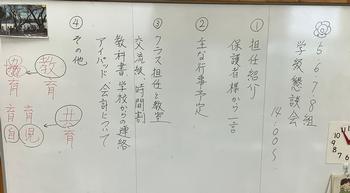 5 6 7 8組
学級懇談会
14:00〜
① 担任紹介
保護者様から一言
② 主な行事予定
③ クラス担任と教室
交流級、時間割
教科書、学校からの連絡
アイパッド、会計について
④ その他
教育
育
共育
育児
育自